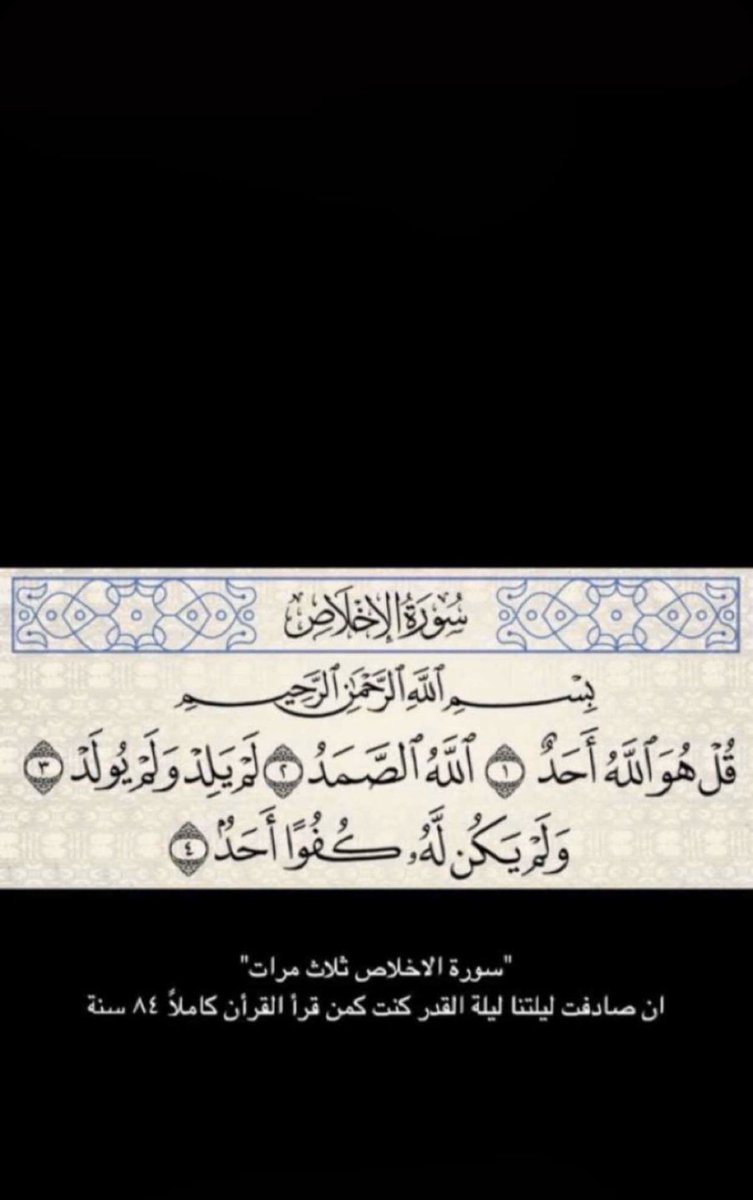 سُورَةُ الإِخْلَاصِ
بِسْمِ ٱللَّهِ ٱلرَّحْمَٰنِ ٱلرَّحِيمِ
قُلْ هُوَ ٱللَّهُ أَحَدٌ ١ ٱللَّهُ ٱلصَّمَدُ ٢ لَمْ يَلِدْ وَلَمْ يُولَدْ ٣
وَلَمْ يَكُن لَّهُۥ كُفُوًا أَحَدٌۢ ٤
"سورة الاخلاص ثلاث مرات"
ان صادفت ليلتنا ليلة القدر كنت كمن قرأ القرأن كاملاً ٨٤ سنة